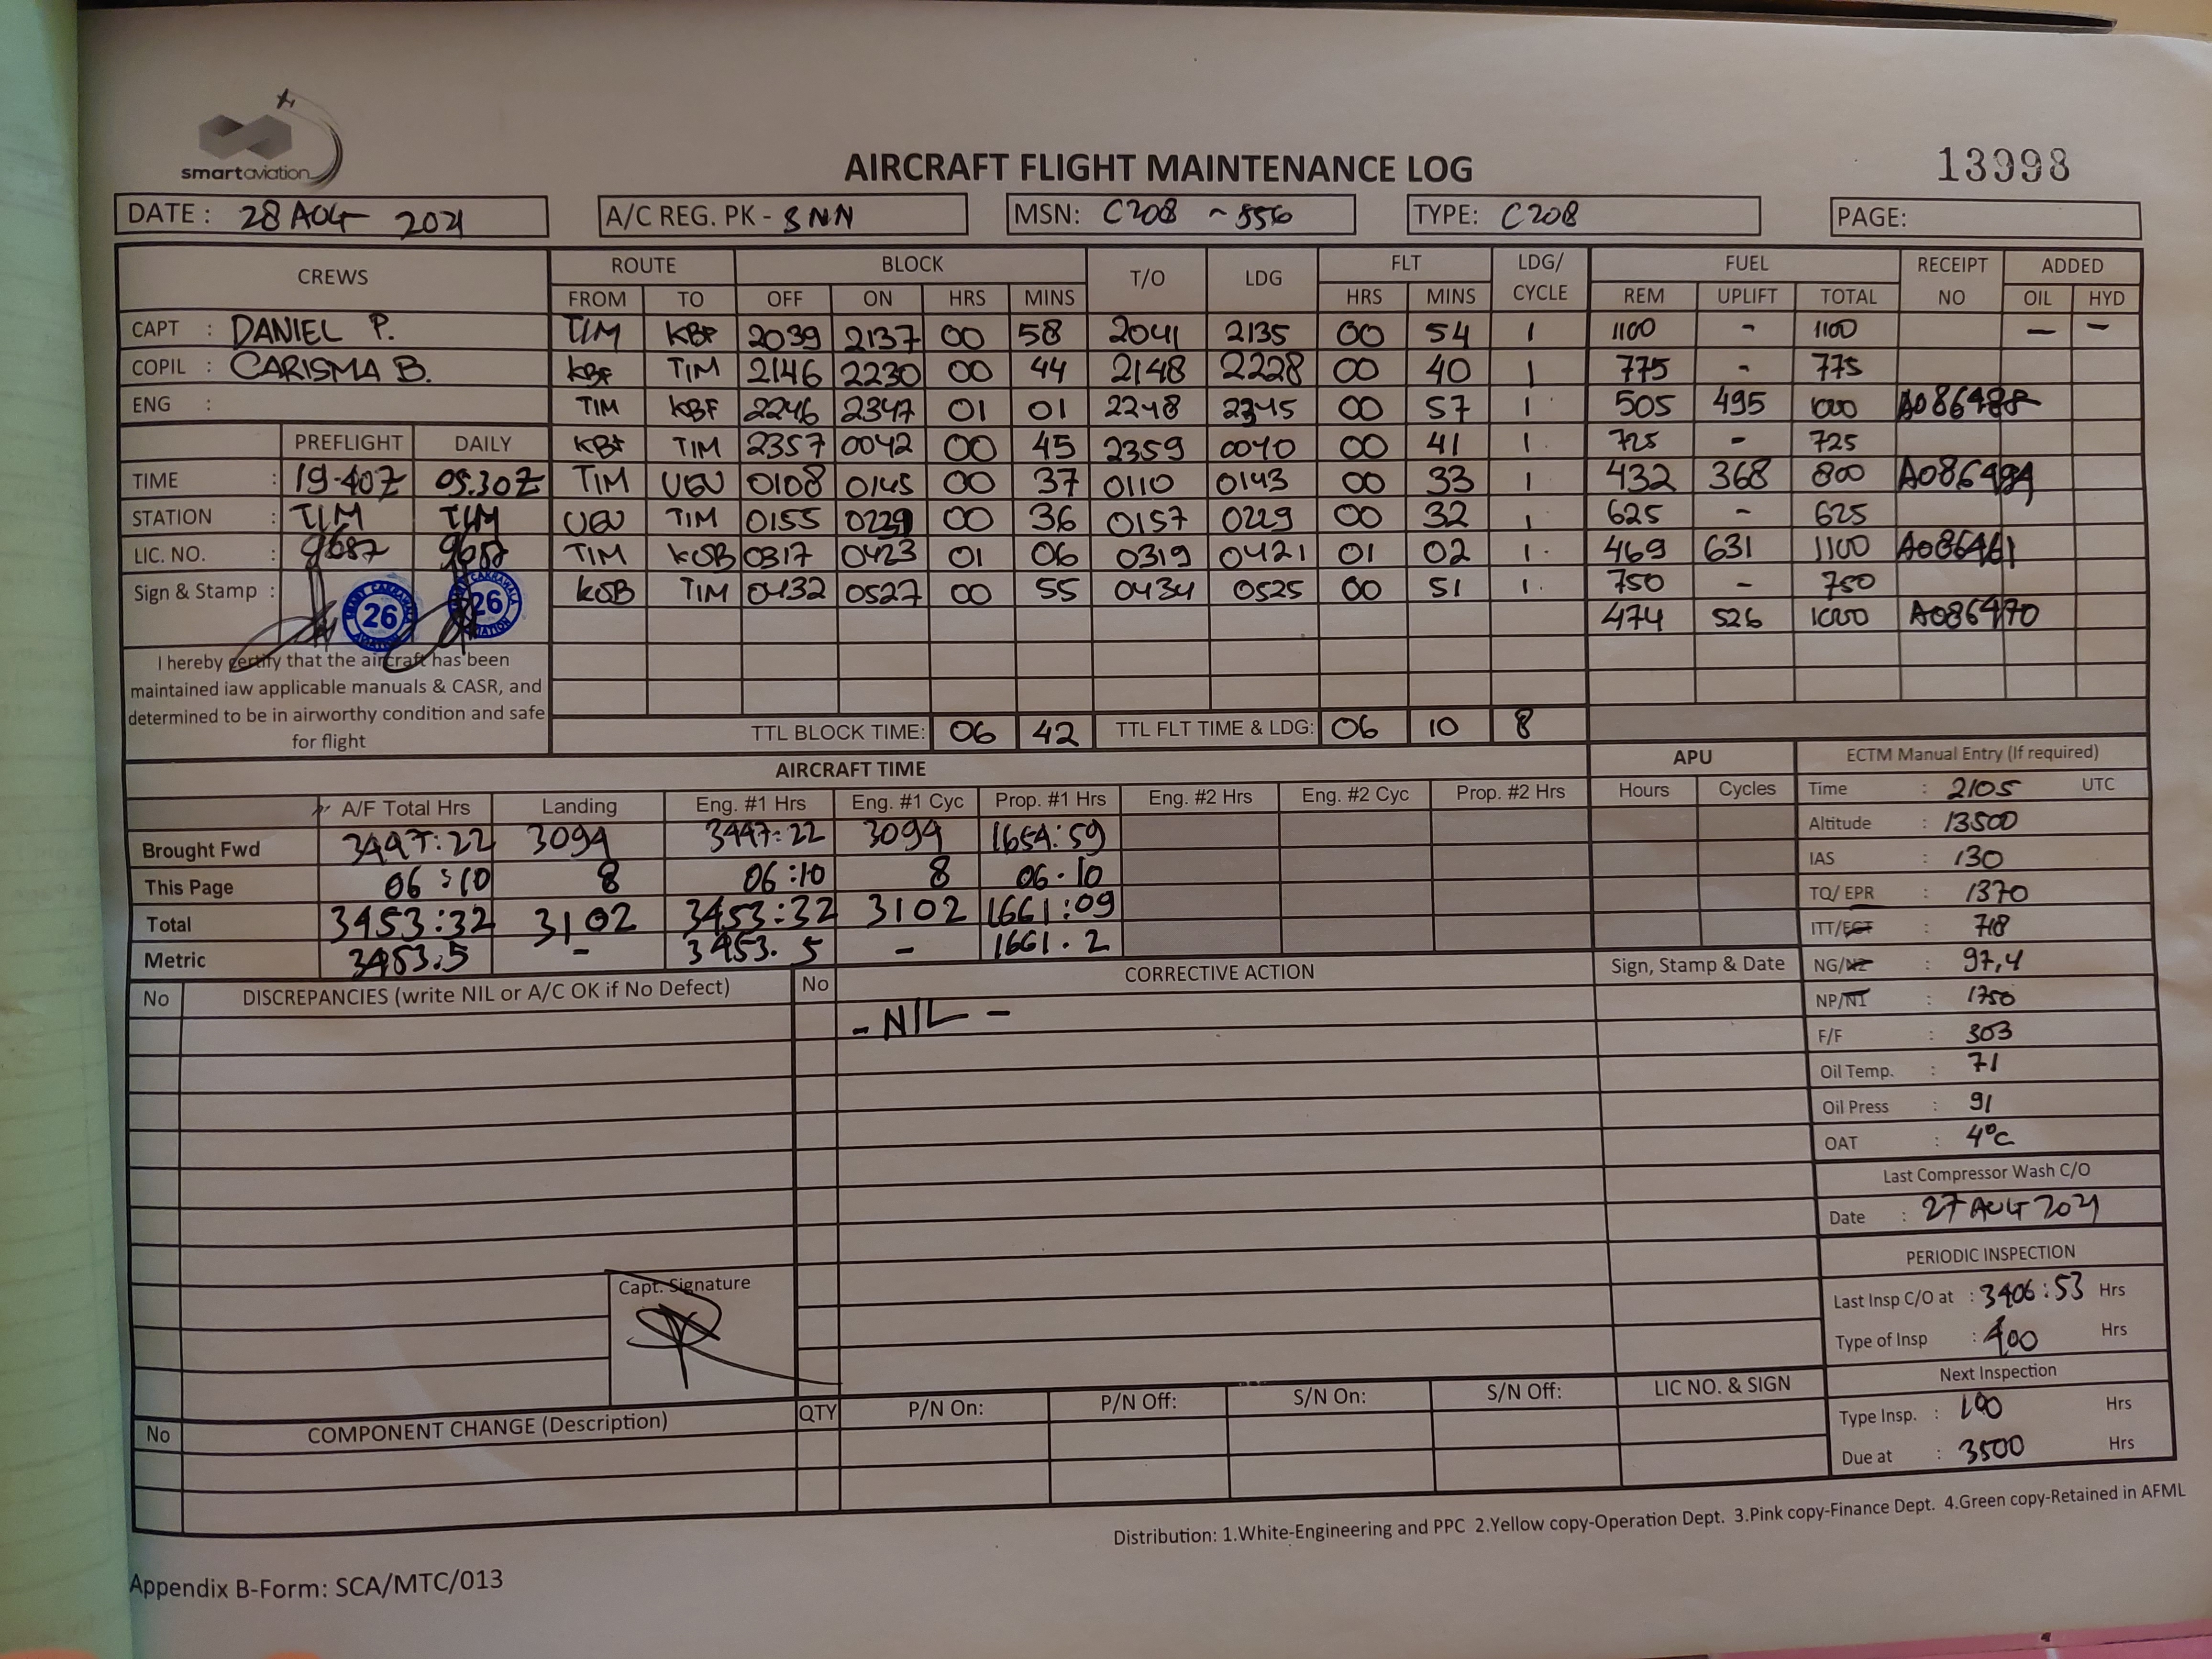 smart aviation
AIRCRAFT FLIGHT MAINTENANCE LOG
13998
DATE : 28 AUG 2021
A/C REG. PK - SNN
MSN: C208 ~ 556
TYPE: C208
PAGE:
CREWS ROUTE BLOCK T/O LDG FLT LDG/ CYCLE FUEL RECEIPT NO ADDED
FROM TO OFF ON HRS MINS HRS MINS REM UPLIFT TOTAL OIL HYD
CAPT : DANIEL P. TIM KBF 2039 2137 00 58 2041 2135 00 54 1 1100 - 1100 — —
COPIL : CARISMA B. KBF TIM 2146 2230 00 44 2148 2228 00 40 1 775 - 775
ENG : TIM KBF 2246 2347 01 01 2248 2345 00 57 1 505 495 1000
PREFLIGHT DAILY KBF TIM 2357 0042 00 45 2359 0040 00 41 1 725 - 725
TIME : 19.40Z 09.30Z TIM UGU 0108 0145 00 37 0110 0143 00 33 1 432 368 800
STATION : TIM TIM UGU TIM 0155 00 36 0157 0229 00 32 1 625 - 625
LIC. NO. : 9687 9687 TIM KOB 0317 0423 01 06 0319 0421 01 02 1 469 631 1100 A086461
Sign & Stamp : 26 26 KOB TIM 0432 0527 00 55 0434 0525 00 51 1 750 - 750
474 526 1000 A086470
I hereby certify that the aircraft has been
maintained iaw applicable manuals & CASR, and
determined to be in airworthy condition and safe
for flight
TTL BLOCK TIME: 06 42 TTL FLT TIME & LDG: 06 10 8
AIRCRAFT TIME APU ECTM Manual Entry (If required)
A/F Total Hrs Landing Eng. #1 Hrs Eng. #1 Cyc Prop. #1 Hrs Eng. #2 Hrs Eng. #2 Cyc Prop. #2 Hrs Hours Cycles
Brought Fwd 3447:22 3094 3447:22 3094 1654:59
This Page 06:10 8 06:10 8 06.10
Total 3453:32 3102 3453:32 3102 1661:09
Metric 3453.5 - 3453.5 - 1661.2
Time : 2105 UTC
Altitude : 13500
IAS : 130
TQ/ EPR : 1370
ITT/EGT : 718
NG/N2 : 97,4
NP/N1 : 1750
F/F : 303
Oil Temp. : 71
Oil Press : 91
OAT : 4°C
Last Compressor Wash C/O
Date : 27 AUG 2021
PERIODIC INSPECTION
Last Insp C/O at : 3406:53 Hrs
Type of Insp : 400 Hrs
Next Inspection
Type Insp. : 100 Hrs
Due at : 3500 Hrs
No DISCREPANCIES (write NIL or A/C OK if No Defect) No CORRECTIVE ACTION Sign, Stamp & Date
- NIL -
Capt. Signature
No COMPONENT CHANGE (Description) QTY P/N On: P/N Off: S/N On: S/N Off: LIC NO. & SIGN
Distribution: 1.White-Engineering and PPC 2.Yellow copy-Operation Dept. 3.Pink copy-Finance Dept. 4.Green copy-Retained in AFML
Appendix B-Form: SCA/MTC/013